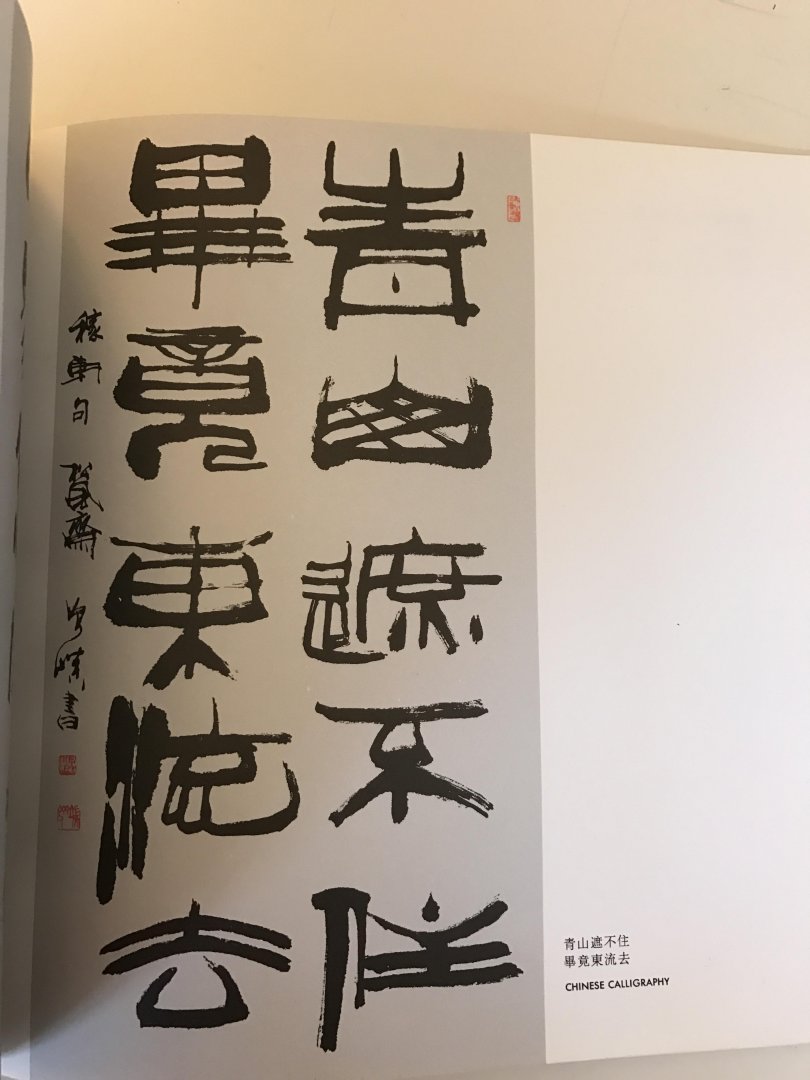 青山遮不住
畢竟東流去
稼軒句
書
青山遮不住
畢竟東流去
CHINESE CALLIGRAPHY